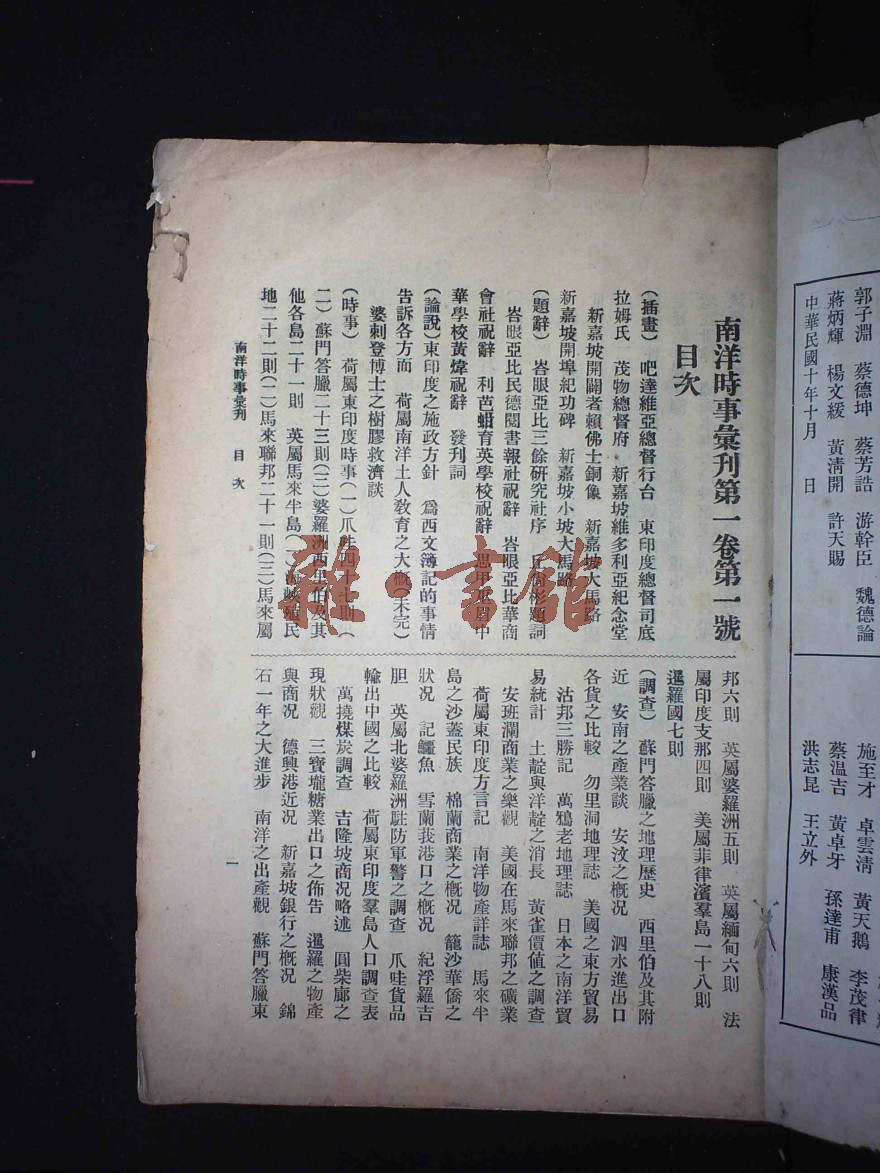 南洋時事彙刊第一卷第一號
目次
(插畫) 吧達維亞總督行台 東印度總督司底
拉姆氏 茂物總督府 新嘉坡維多利亞紀念堂
新嘉坡開闢者賴佛士銅像 新嘉坡大馬路
新嘉坡開埠紀功碑 新嘉坡小坡大馬路
(題辭) 峇眼亞比三餘研究社序 丘 彬題詞
峇眼亞比民德閱書報社祝辭 峇眼亞比華商
會社祝辭 利芭 育英學校祝辭 思甲 眉中
華學校黃煒祝辭 發刊詞
(論說) 東印度之施政方針 為西文簿記的事情
告訴各方面 荷屬南洋土人敎育之大概(未完)
婆刺登博士之樹膠救濟談
(時事) 荷屬東印度時事(一)爪哇四十七則(
二)蘇門答臘二十三則(三)婆羅洲西里伯及其
他各島二十一則 英屬馬來半島(一)海峽殖民
地二十二則(二)馬來聯邦二十一則(三)馬來屬
邦六則 英屬婆羅洲五則 英屬緬甸六則 法
屬印度支那四則 美屬菲律濱羣島一十八則
暹羅國七則
(調查) 蘇門答臘之地理歷史 西里伯及其附
近 安南之產業談 安汶之概况 泗水進出口
各貨之比較 勿里洞地理誌 美國之東方貿易
沽邦三勝記 萬鴉老地理誌 日本之南洋貿
易統計 土靛與洋靛之消長 黃雀價值之調查
安班瀾商業之樂觀 美國在馬來聯邦之礦業
荷屬東印度方言記 南洋物產詳誌 馬來半
島之沙蓋民族 棉蘭商業之概况 籠沙華僑之
狀况 記鱷魚 雪蘭莪港口之概况 紀浮羅吉
胆 英屬北婆羅洲駐防軍警之調查 爪哇貨品
輸出中國之比較 荷屬東印度羣島人口調查表
萬撓煤炭調查 吉隆坡商况略述 圓柴廊之
現狀觀 三寶壠糖業出口之佈告 暹羅之物產
與商况 德興港近况 新嘉坡銀行之概况 錦
石一年之大進步 南洋之出產觀 蘇門答臘東
南洋時事彙刊 目次
一
郭子淵 蔡德坤 蔡芳誥 游幹臣 魏德諭
蔣炳輝 楊文綬 黃淸開 許天賜
中華民國十年十月 日
施至才 卓雲淸 黃天鵝 李茂律
蔡溫吉 黃卓牙 孫達甫 康漢品
洪志昆 王立外
雜·書館